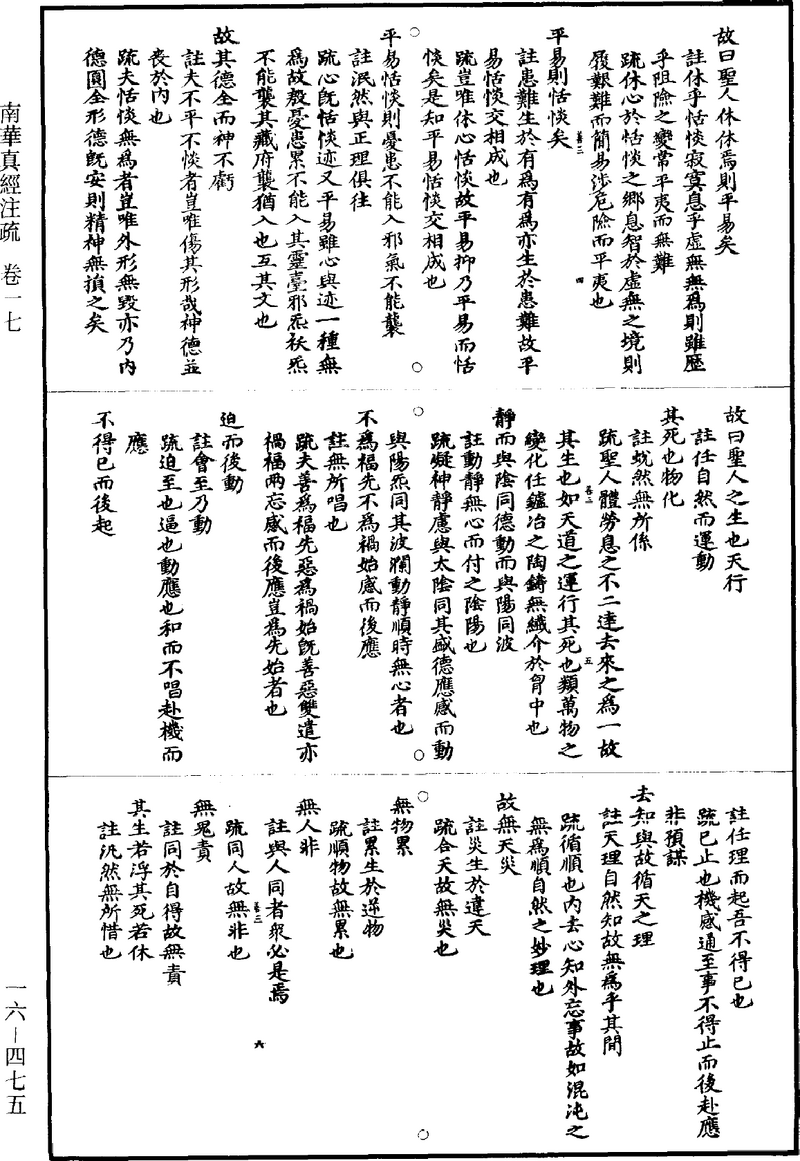 故曰聖人休休焉則平易矣
註休乎恬惔寂寞息乎虛無無爲則雖歷
乎阻險之變常平夷而無難
疏休心於恬惔之鄉息智於虛無之境則
履艱難而簡易涉危險而平夷也
平易則恬惔矣
註患難生於有爲有爲亦生於患難故平
易恬惔交相成也
疏豈唯休心恬惔故平易抑乃平易而恬
惔矣是知平易恬惔交相成也
平易恬惔則憂患不能入邪氣不能襲
註泯然與正理俱往
疏心既恬惔迹又平易雖心與迹一種無
爲故敖憂患累不能入其靈臺邪炁祅炁
不能襲其藏府襲猶入也互其文也
故其德全而神不虧
註夫不平不惔者豈唯傷其形哉神德並
喪於內也
疏夫恬惔無爲者豈唯外形無毀亦乃內
德圓全形德既安則精神無損之矣
故曰聖人之生也天行
註任自然而運動
其死也物化
註蛻然無所係
疏聖人體勞息之不二達去來之爲一故
其生也如天道之運行其死也類萬物之
變化任鑪冶之陶鑄無纖介於胷中也
靜而與陰同德動而與陽同波
註動靜無心而付之陰陽也
疏凝神靜慮與太陰同其盛德應感而動
與陽炁同其波瀾動靜順時無心者也
不爲福先不爲禍始感而後應
註無所唱也
疏夫善爲福先惡爲禍始既善惡雙遣亦
禍福兩忘感而後應豈爲先始者也
迫而後動
註會至乃動
疏迫至也逼也動應也和而不唱赴機而
應
不得已而後起
註任理而起吾不得已也
疏已止也機感通至事不得止而後赴應
非預謀
去知與故循天之理
註天理自然知故無爲乎其間
疏循順也內去心知外忘事故如混沌之
無爲順自然之妙理也
故無天災
註災生於違天
疏合天故無災也
無物累
註累生於逆物
疏順物故無累也
無人非
註與人同者衆必是焉
疏同人故無非也
無鬼責
註同於自得故無責
其生若浮其死若休
註汎然無所惜也
南華真經注疏　卷一七
一六—四七五